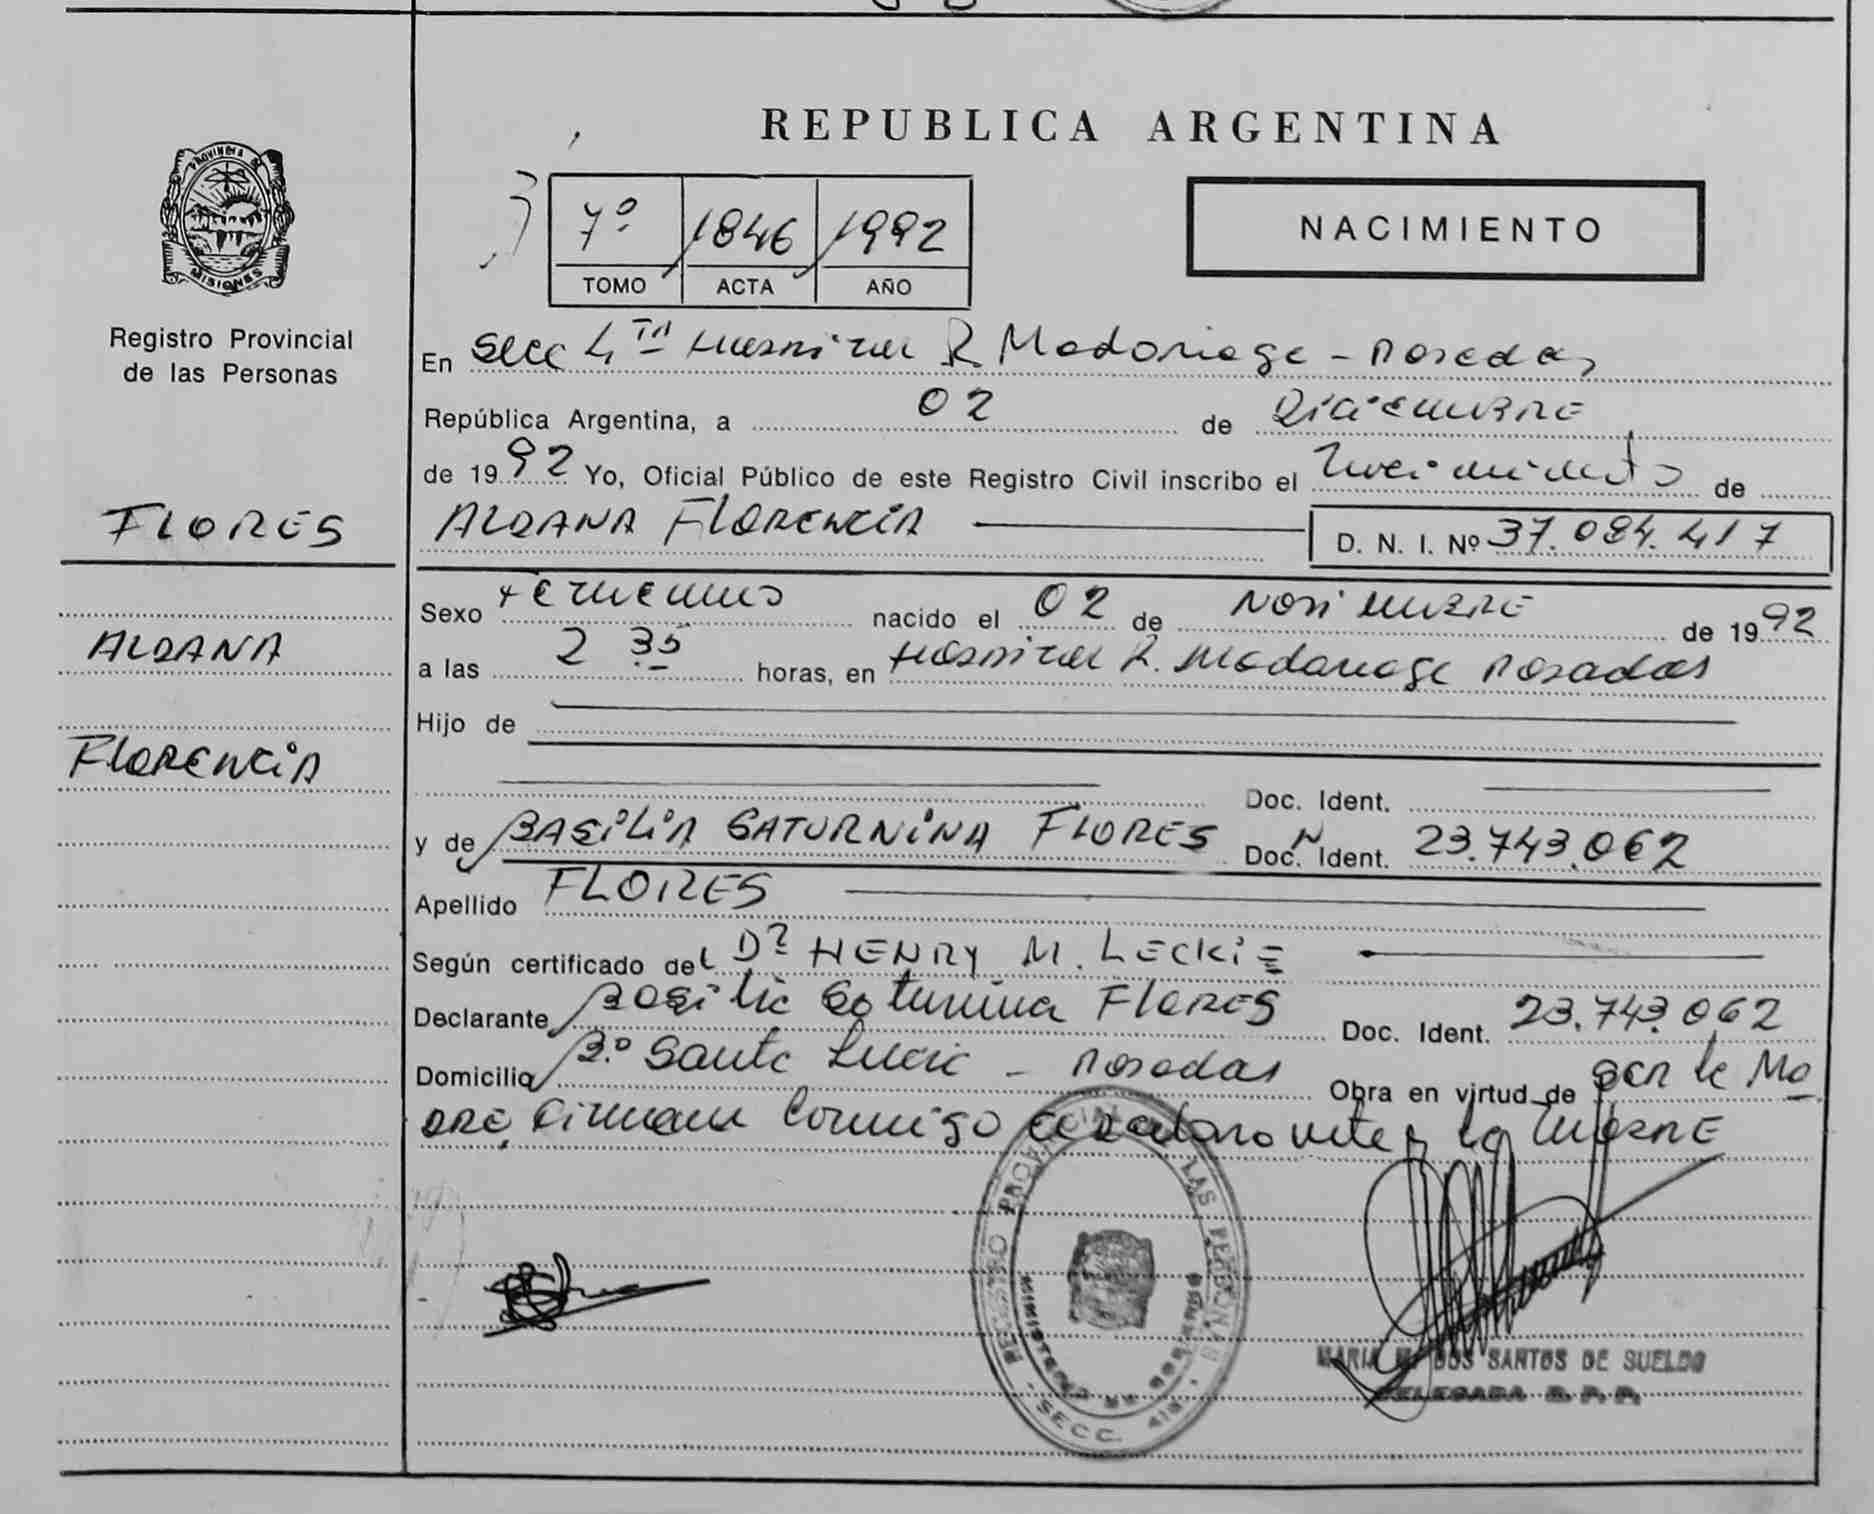 PROVINCIA DE
MISIONES
Registro Provincial
de las Personas
FLORES
ALDANA
FLORENCIA
REPUBLICA ARGENTINA
7º 1846 1992
TOMO ACTA AÑO
NACIMIENTO
En Secc 4ta Hospital R Madariaga - Posadas
República Argentina, a 02 de Diciembre
de 1992 Yo, Oficial Público de este Registro Civil inscribo el Nacimiento de
ALDANA FLORENCIA D. N. I. Nº 37.084.417
Sexo Femenino nacido el 02 de Noviembre de 1992
a las 2 35 horas, en Hospital R. Madariaga Posadas
Hijo de
Doc. Ident.
y de BASILIA SATURNINA FLORES Doc. Ident. 23.743.062
Apellido FLORES
Según certificado del Dr HENRY M. LECKIE
Declarante Basilia Saturnina FLORES Doc. Ident. 23.743.062
Domicilio Bº Santa Lucia - Posadas Obra en virtud de ser la Ma
dre, Firman Conmigo la Madre
REGISTRO PROVINCIAL LAS PERSONAS
MINISTERIO DE GOBIERNO
SECC. 4ta
MARIA M. DOS SANTOS DE SUELDO
DELEGADA R. P. P.